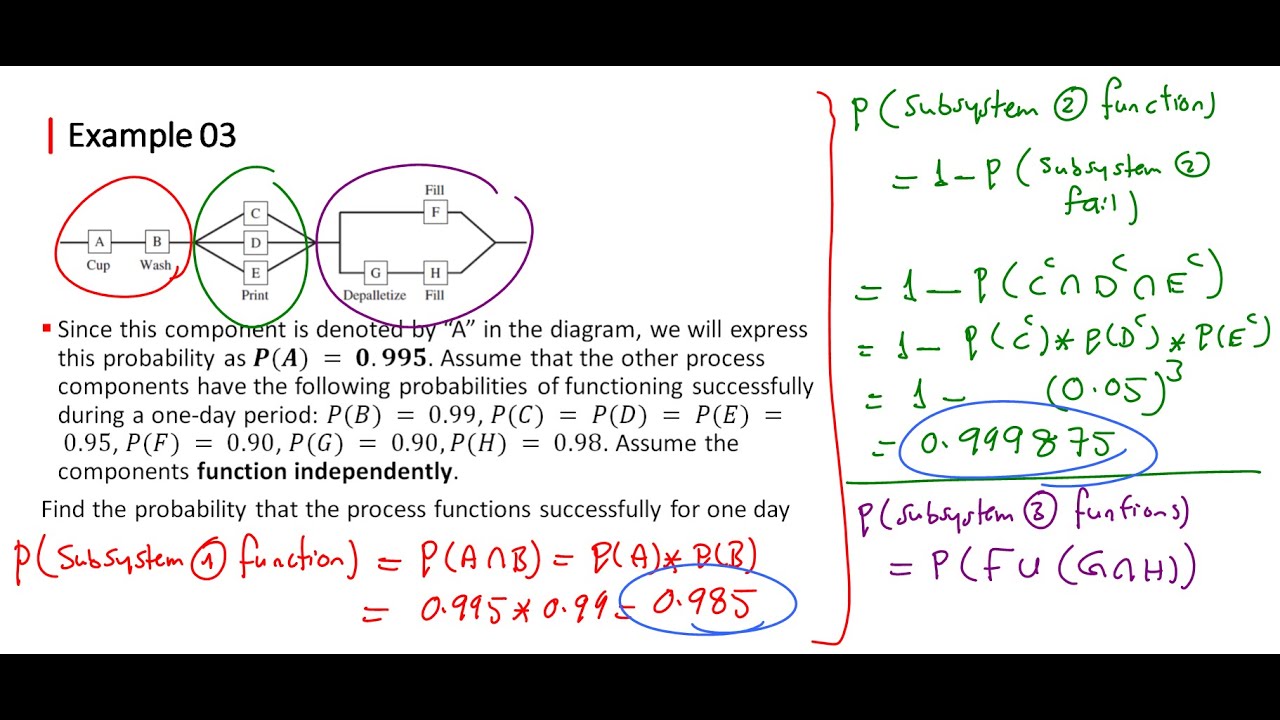 Example 03
Fill
C
F
A
B
D
Cup
Wash
E
G
H
Print
Depalletize
Fill
Since this component is denoted by “A” in the diagram, we will express
this probability as P(A) = 0.995. Assume that the other process
components have the following probabilities of functioning successfully
during a one-day period: P(B) = 0.99, P(C) = P(D) = P(E) =
0.95, P(F) = 0.90, P(G) = 0.90, P(H) = 0.98. Assume the
components function independently.
Find the probability that the process functions successfully for one day
P(Subsystem ① function) = P(A∩B) = P(A)* P(B)
= 0.995 * 0.99 = 0.985
P(Subsystem ② function)
= 1 - P(Subsystem ②
fail)
= 1 - P(Cᶜ∩Dᶜ∩Eᶜ)
= 1 - P(Cᶜ)* P(Dᶜ) * P(Eᶜ)
= 1 - (0.05)³
= 0.999875
P(Subsystem ③ funtions)
= P(F∪(G∩H))